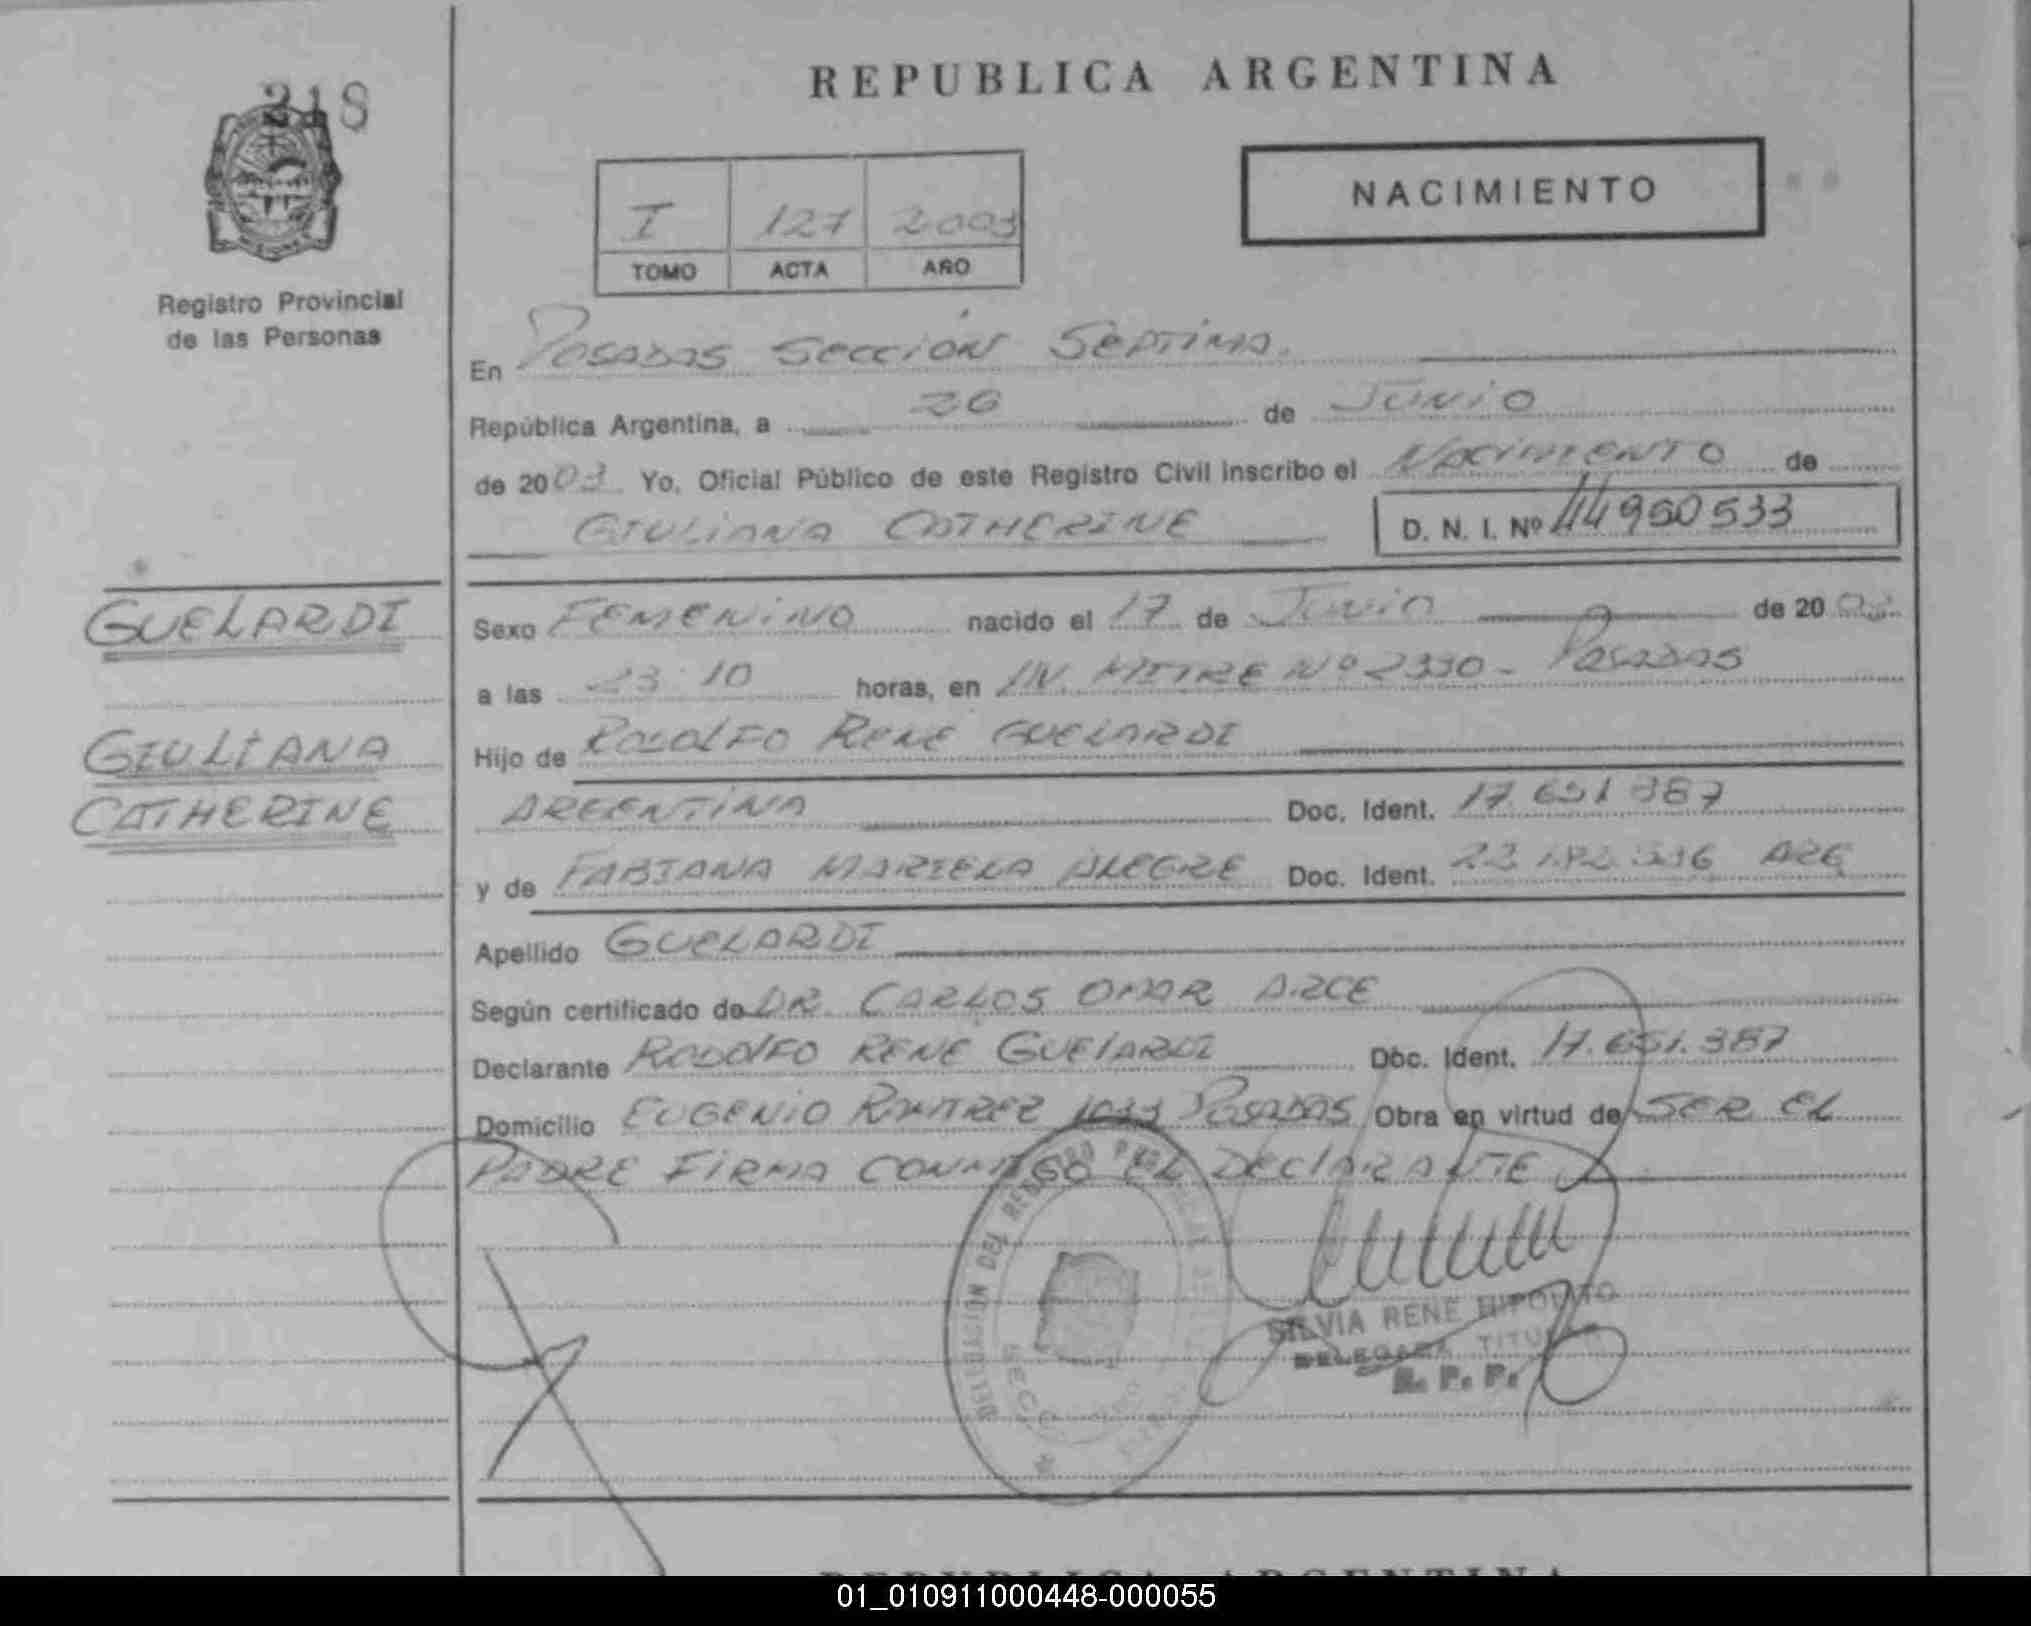 218
REPUBLICA ARGENTINA
NACIMIENTO
I 127 2003
TOMO ACTA AÑO
Registro Provincial
de las Personas
En POSADAS SECCION SEPTIMA.
República Argentina, a 26 de JUNIO
de 2003 Yo, Oficial Público de este Registro Civil inscribo el NACIMIENTO de
GIULIANA CATHERINE D. N. I. Nº 44950533
GUELARDI
GIULIANA
CATHERINE
Sexo FEMENINO nacido el 17 de JUNIO de 2003
a las 23 10 horas, en AV. MITRE Nº 2330 - POSADAS
Hijo de RODOLFO RENE GUELARDI
ARGENTINA Doc. Ident. 17 651 387
y de FABIANA MARIELA ALEGRE Doc. Ident. ARG
Apellido GUELARDI
Según certificado de DR. CARLOS OMAR ARCE
Declarante RODOLFO RENE GUELARDI Doc. Ident. 17.651.387
Domicilio EUGENIO RAMIREZ POSADAS Obra en virtud de SER EL
PADRE FIRMA CONMIGO EL DECLARANTE
DIRECCION DEL REGISTRO
SILVIA RENE HIPOLITO
DELEGADA TITULAR
R. P. P.
REPUBLICA ARGENTINA
01_010911000448-000055